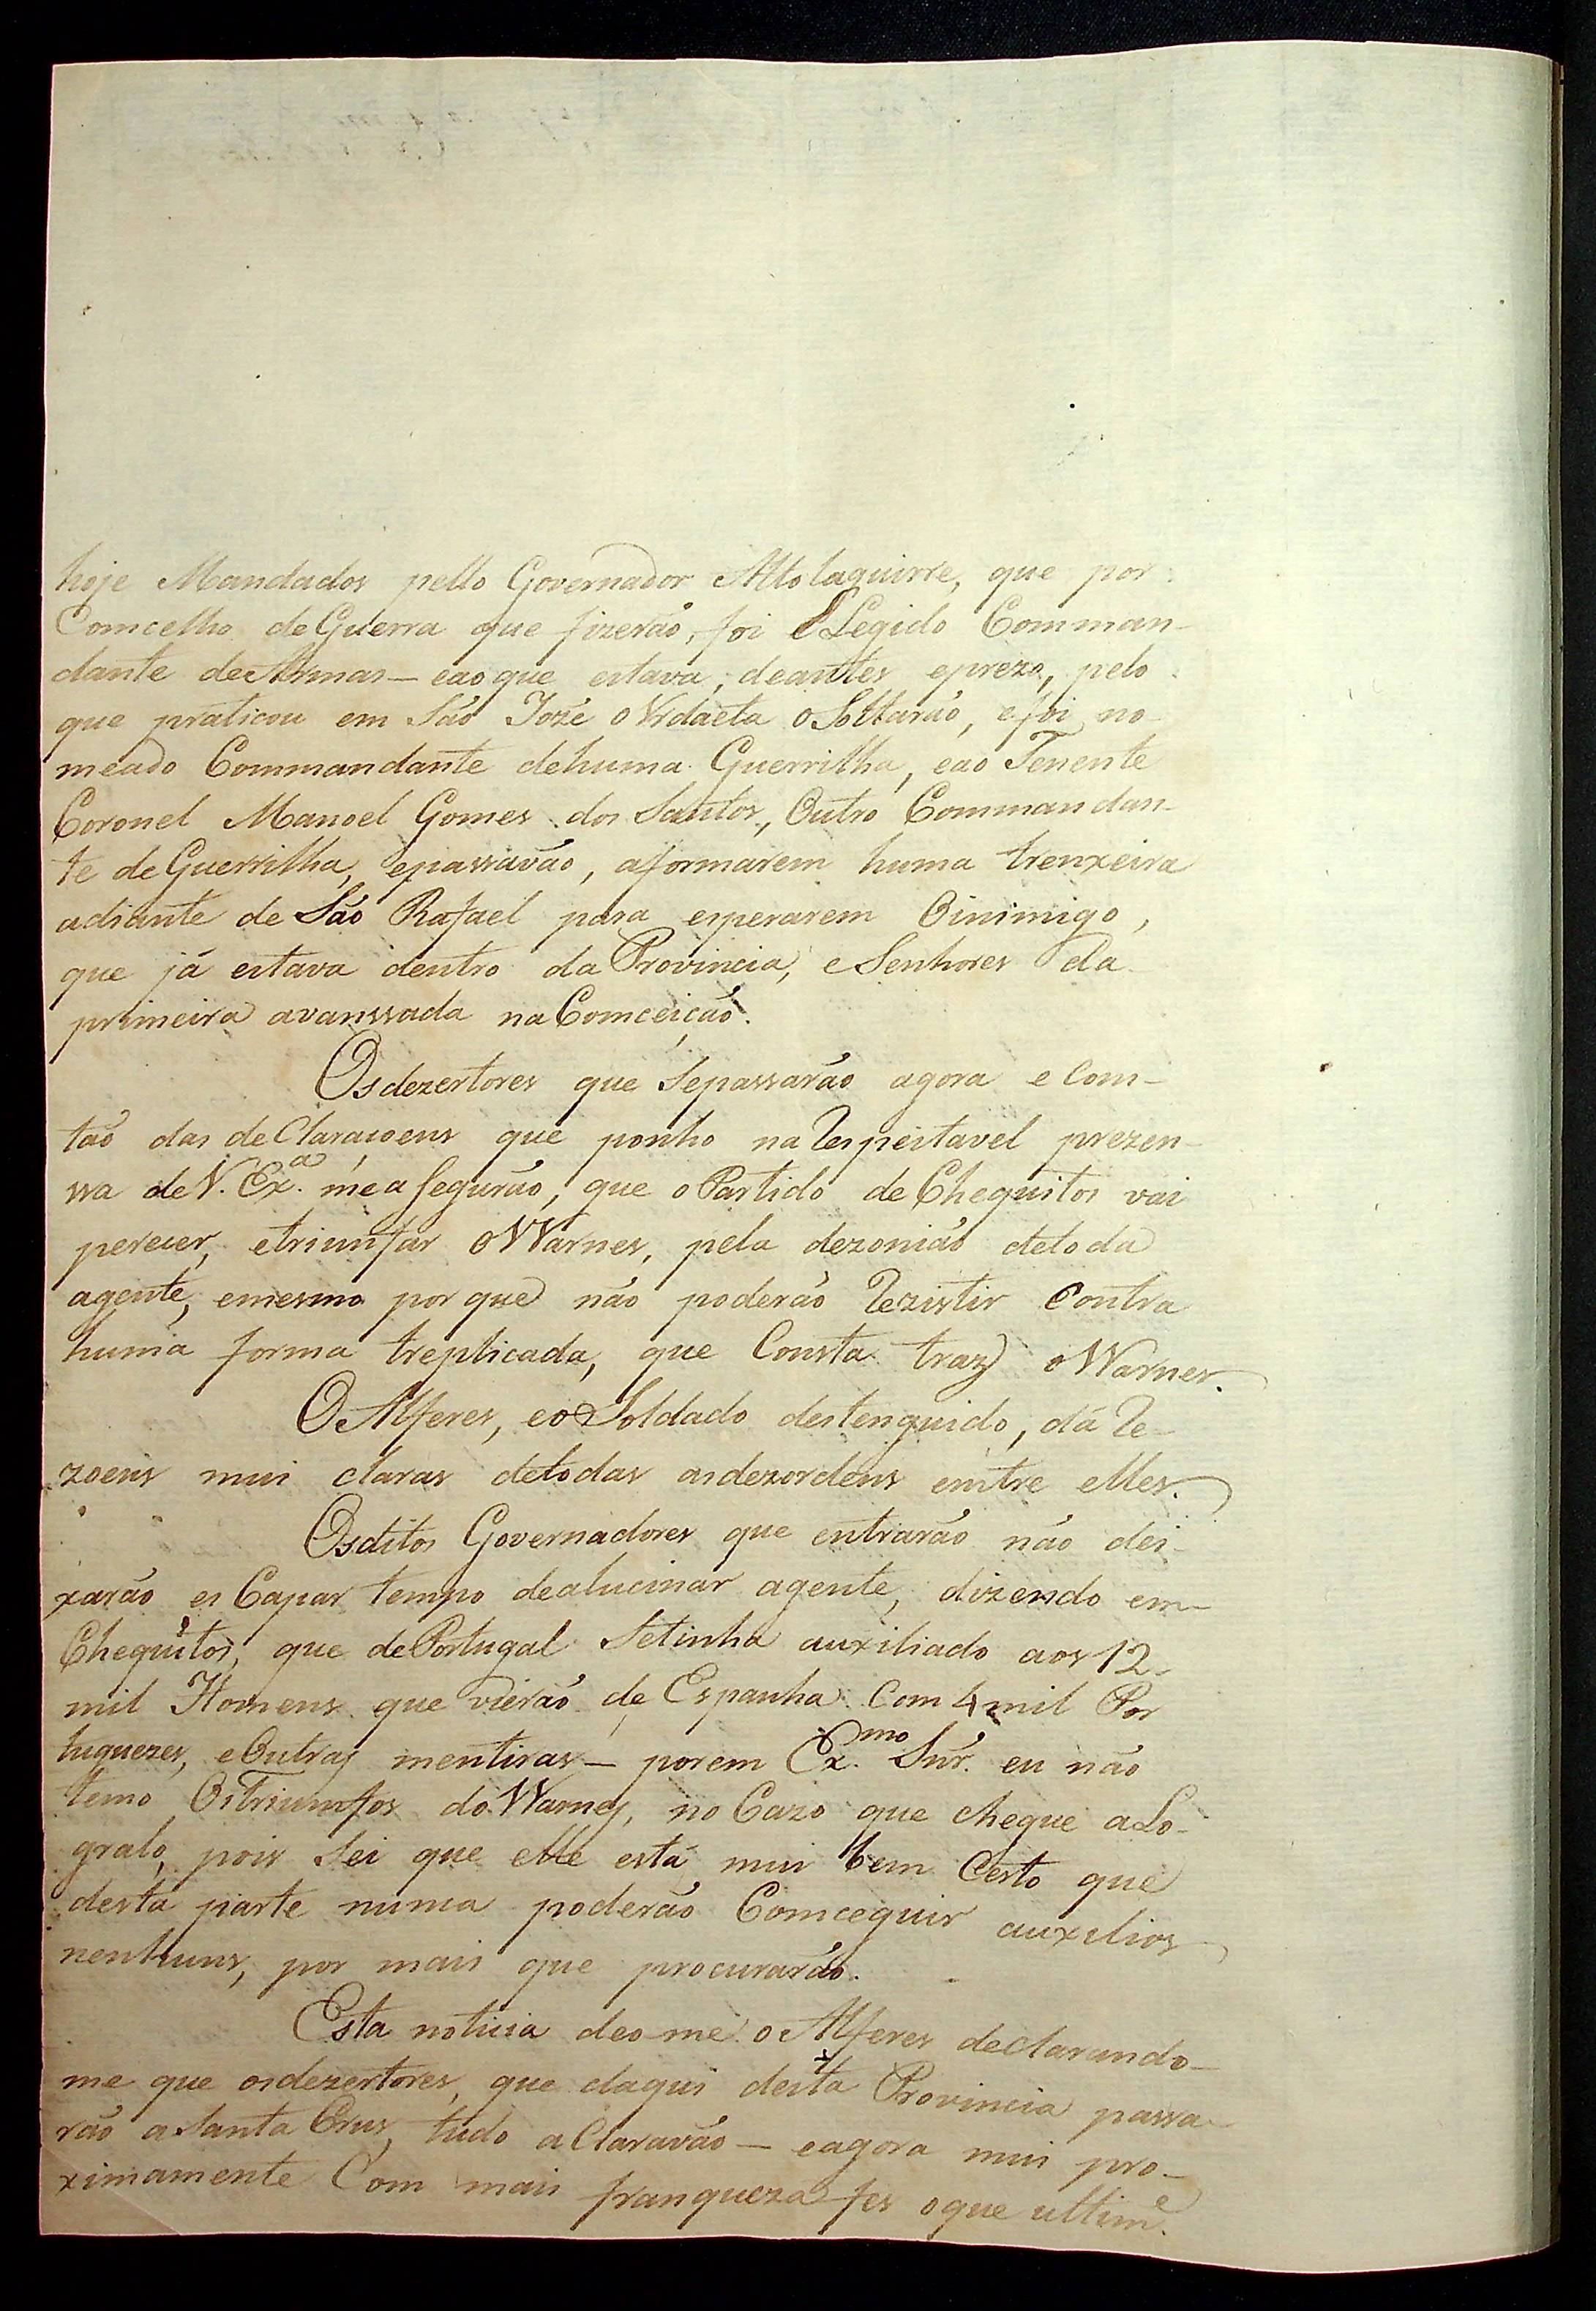 hoje Mandados pello Governador Altolaguirre, que por
Comcelho de Guerra que fizerão, foi ELegido Comman-
dante de Armas — eao que estava, deantes eprezo, pelo
que praticou em São Jozé o Vrdaeta o Soltarão, e foi no-
meado Commandante dehuma Guerrilha, eao Tenente
Coronel Manoel Gomes dos Santos, Outro Commandan-
te de Guerrilha, epassavão, aformarem huma trenxeira
adiante de São Rafael para esperarem Oinimigo,
que já estava dentro da Provincia, e Senhores da
primeira avanssada na Comceição.
Osdezertores que Sepassarão agora e Com-
tão das deClarasoens que ponho na Respeitavel prezen-
ssa de V. Exª. me a Segurão, que o Partido de Chequitos vai
perecer, etriunfar o Warnes, pela dezonião detoda
agente, emesmo por que não poderão Rezistir Contra
huma forma treplicada, que Consta traz o Warnes.
O Alferes, eo Soldado destenguido, dá Re-
zoens mui claras detodas asdezordens emtre elles.
Osditos Governadores que entrarão não dei-
xarão es Capar tempo dealucinar agente, dizendo em
Chequitos, que de Portugal Setinha auxiliado aos 12
mil Homens que vierão de Espanha Com 4 mil Por
tuguezes, eOutras mentiras — porem Ex.mo Snr. eu não
temo Ostriumfos do Warnes, no Cazo que chegue aLo-
gralo, pois Sei que elle está mui bem Certo que
desta parte nunca poderão Comceguir auxilios
nenhuns, por mais que procurarão.
Esta noticia deo-me o Alferes declarando-
me que osdezertores, que daqui desta Provincia passa-
rão a Santa Crus, tudo aClaravão — eagora mui pro-
ximamente Com mais franqueza fes oque ultime.